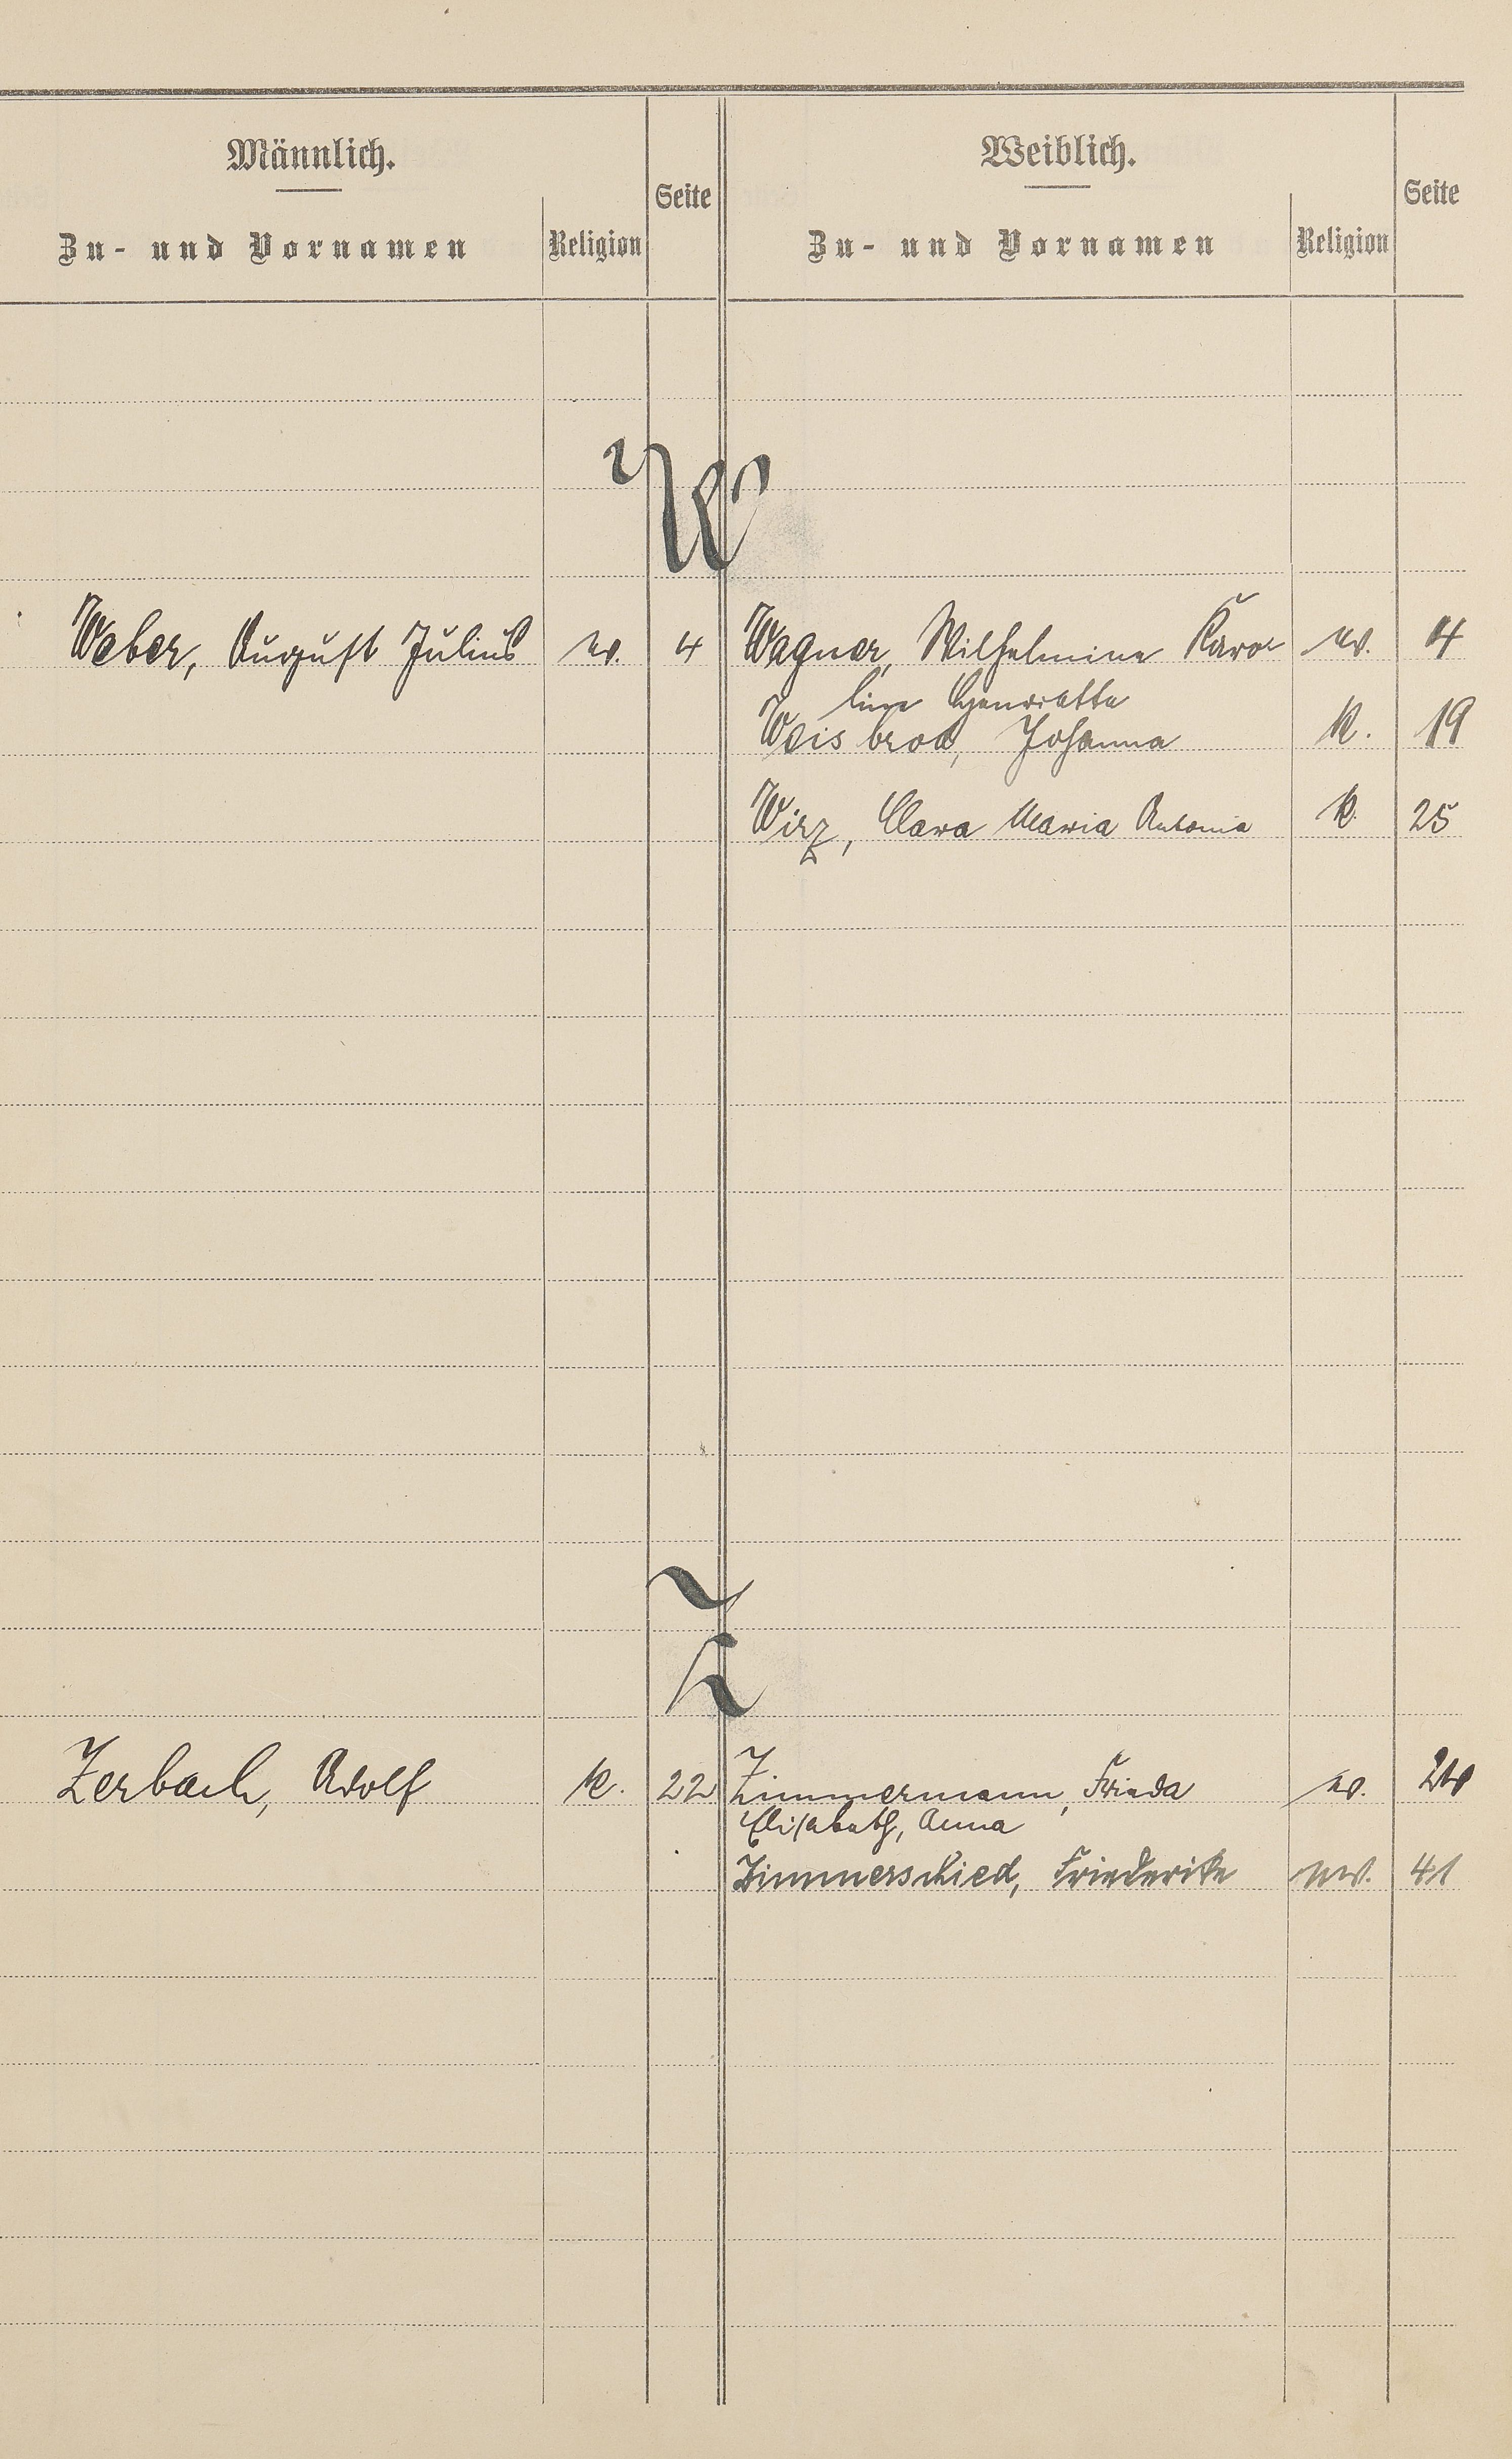 Männlich.
Zu- und Vornamen
Religion
Seite
Weiblich.
Zu- und Vornamen
Religion
Seite
W
Weber, August Julius ev. 4
Wagner, Wilhelmine Karo- ev. 4
line Henriette
Weisbrod, Johanna k. 19
Wirz, Clara Maria Antonia k. 25
Z
Zerbach, Adolf k. 22
Zimmermann, Frieda ev. 24
Elisabeth, Anna
Zimmerschied, Friederike ev. 41